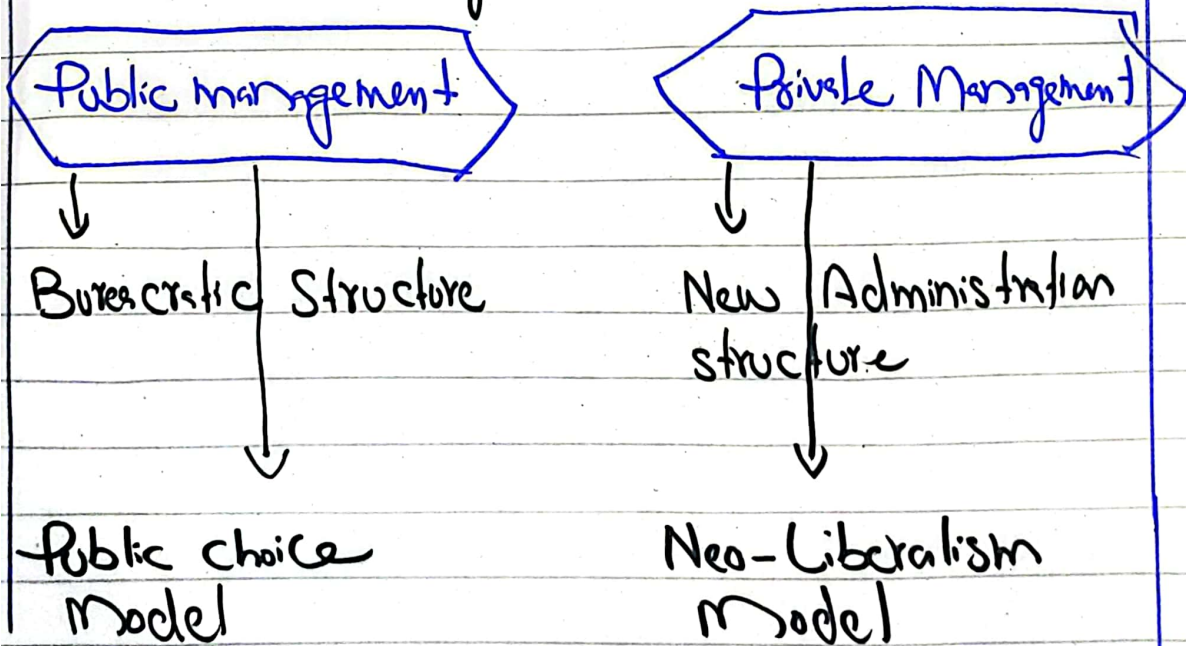 Public management
Private Management
Bureacratic Structure
New Administration
structure
Public choice
Model
Neo-Liberalism
Model